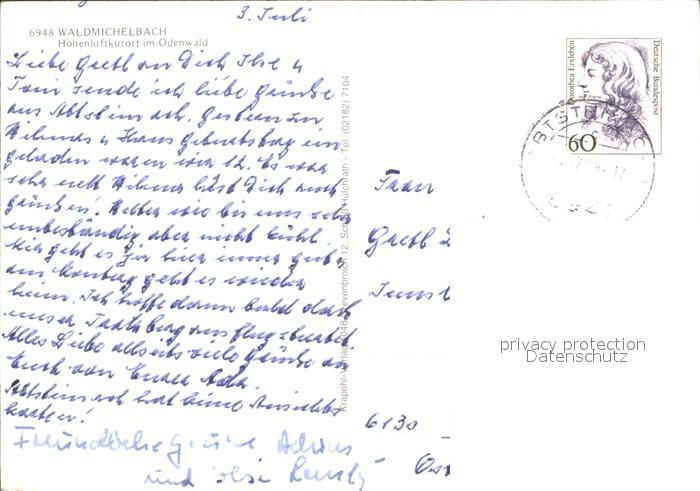 3. Juli
6948 WALDMICHELBACH
Höhenluftkurort im Odenwald
Liebe Gretl an Dich Ilse u
Toni sende ich liebe Grüße
aus Abtsteinach. Gestern zu
Wilmas u Hans Geburtstag ein
geladen waren wir 12. Es war
sehr nett Wilma lässt Dich auch
grüßen! Wetter wie bei uns sehr
unbeständig aber nicht kühl.
Mir geht es hier immer gut
am Montag geht es wieder
heim. Ich hoffe dann bald doch
unser
Alles Liebe allseits viele Grüße an
Euch von Eurer
Abtsteinach hat keine Ansichts
karten!
Freundliche Grüße
und Ilse
Krapohl-Verlag 4048 Grevenbroich 12, Schloß Hülchrath - Tel. (02182) 7104
Dorothea Erxleben
Deutsche Bundespost
60
ABTST
Frau
Gretl
6130
privacy protection
Datenschutz